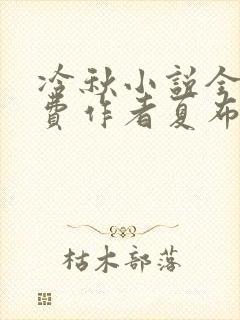 冷秋小说全
费作者夏布
枯木部落